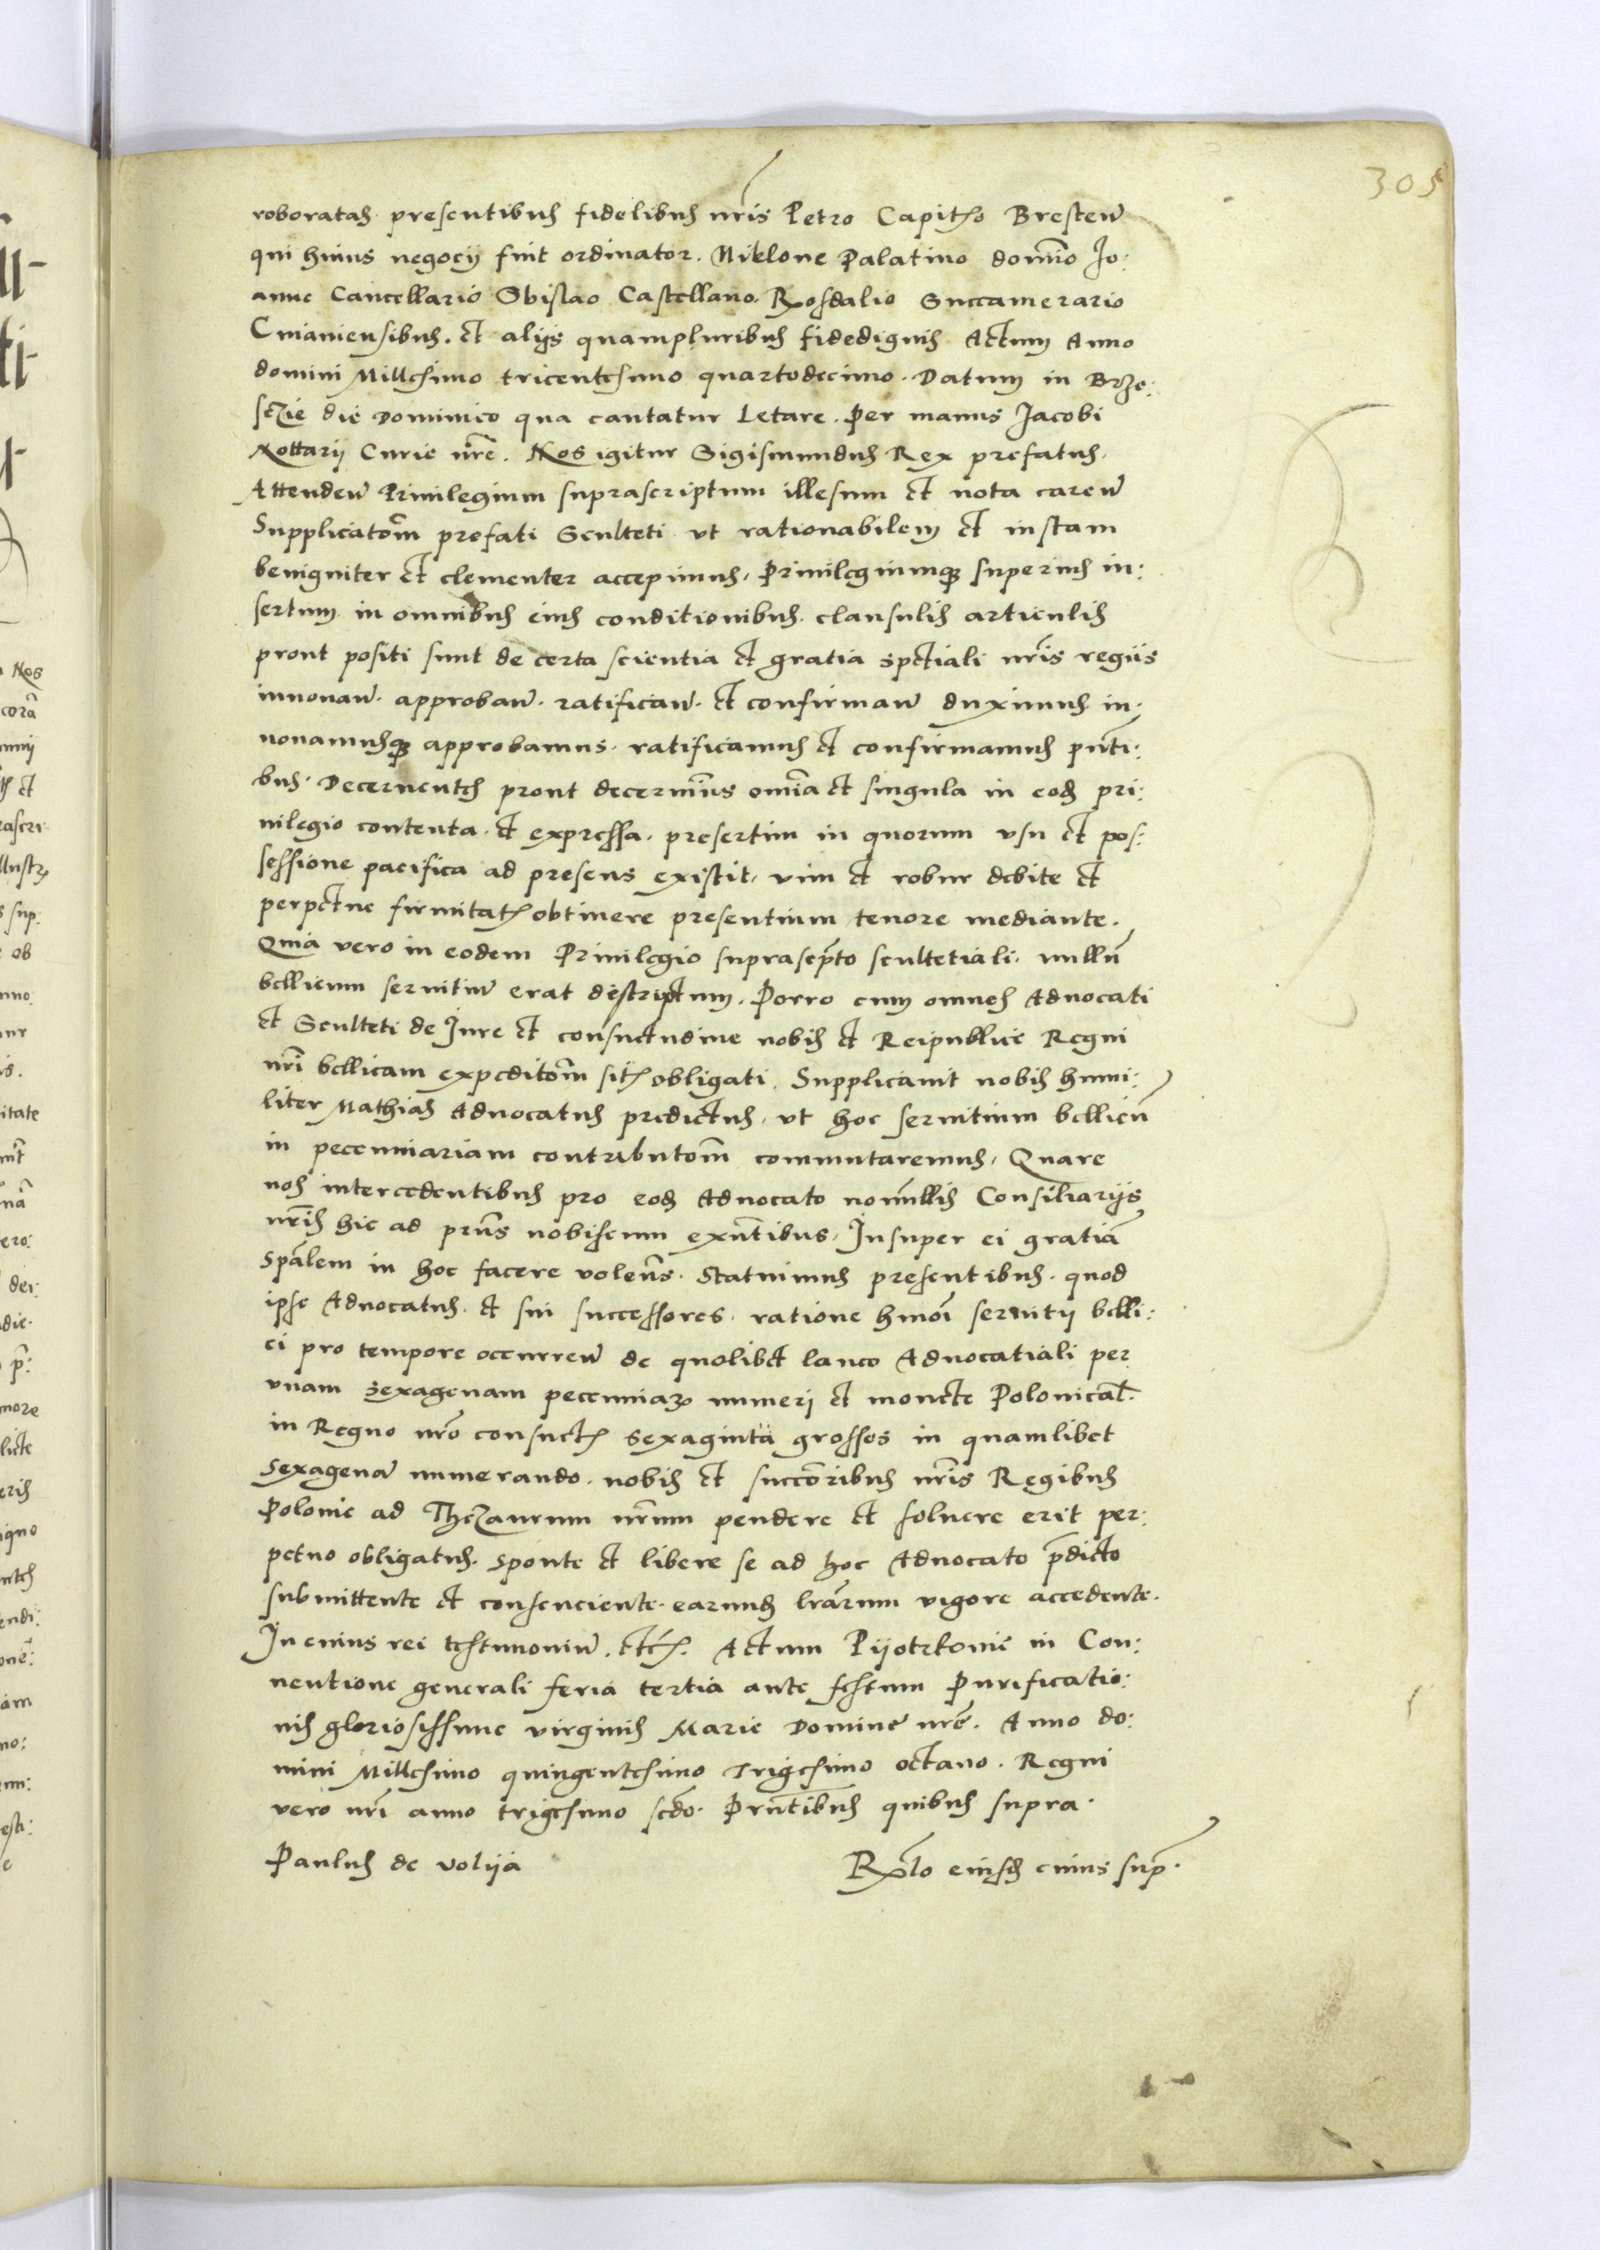 305
roboratas presentibus fidelibus nris Petro Capitº Bresten
qui huius negocij fuit ordinator. Niklone Palatino domino Jo:
anne Cancellario Obislao Castellano. Rosdalio Succamerario
Cuiaviensibus. et alijs quampluribus fidedignis Actum Anno
domini Millesimo tricentesimo quartodecimo. Datum in Brze:
sczie die Dominico qua cantatur Letare. Per manus Jacobi
Nottarij Curie nre. Nos igitur Sigismundus Rex prefatus.
Attenden Privilegium suprascriptum illesum et nota caren
Supplicatom prefati Sculteti ut rationabilem et iustam
benigniter et clementer accepimus, Privilegiumq superius in:
sertum in omnibus eius conditionibus. clausulis articulis
prout positi sunt de certa scientia et gratia sp̄ctiali nris regiis
innovan. approban. ratifican. et confirman duximus in:
novamusq approbamus. ratificamus et confirmamus pnti:
bus. Decernentes prout decernimus omnia et singula in eod pri:
vilegio contenta. et expressa. presertim in quorum usu et pos:
sessione pacifica ad presens existit, vim et robur debite et
perpetue firmitatis obtinere presentium tenore mediante.
Quia vero in eodem Privilegio suprascpto scultetiali. nullu
bellicum servitiu erat descriptum. Porro cum omnes Advocati
et Sculteti de Jure et consuetudine nobis et Reipublice Regni
nri bellicam expeditom sint obligati. Supplicavit nobis humi:
liter Mathias Advocatus predictus, ut hoc servitium bellicu
in pecuniariam contributom commutaremus. Quare
nos intercedentibus pro eod Advocato nonnullis Consiliarijs
nris hic ad prns nobiscum exntibus. Insuper ei gratia
spalem in hoc facere volens. Statuimus presentibus. quod
ipse Advocatus. et sui successores. ratione hmoi servitij belli:
ci pro tempore occurren de quolibet laneo Advocatiali per
unam sexagenam pecuniar numeri et monete Polonical.
in Regno nro consuete Sexaginta grosses in quamlibet
Sexagena numerando. nobis et succoribus nris Regibus
Polonie ad Thezaurum nrum pendere et solvere erit per:
petuo obligatus. Sponte et libere se ad hoc Advocato pdicto
submittente et consenciente. earund lrarum vigore accedente.
In cuius rei testimoniu. etc. Actum Pyotrkovie in Con:
ventione generali feria tertia ante festum Purificatio:
nis gloriosissime virginis Marie Domine nre. Anno do:
mini Millesimo quingentesimo Trigesimo octavo. Regni
vero nri anno trigesimo scdo. Prntibus quibus supra.
Paulus de volija
Rlo eiusd cuius sup.